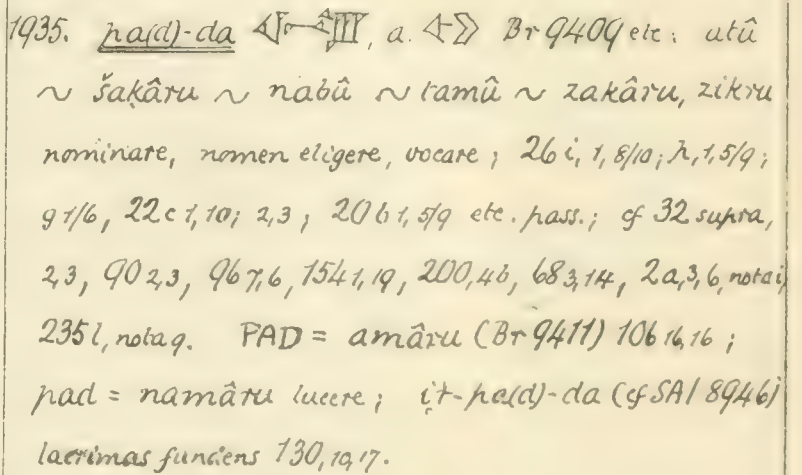 1935. pa(d)-da 𒅆𒊒, a. Br 9409 etc: utû
~ šaḳâru ~ nabû ~ tamû ~ zakâru, zikru
nominare, nomen eligere, vocare; 26 i, 1, 8/10; h, 1, 5/9;
g 1/6, 22 c 1, 10; 2, 3; 20 b 1, 5/9 etc. pass.; cf 32 supra,
2,3, 90 2,3, 96 7,6, 154 1,19, 200,4b, 68 3,14, 2a,3,6, nota i,
235 l, nota q. PAD = amâru (Br 9411) 106 16,16;
pad = namâru lucere; ír-pa(d)-da (cf SAI 8946)
lacrimas fundens 130, 19, 17.